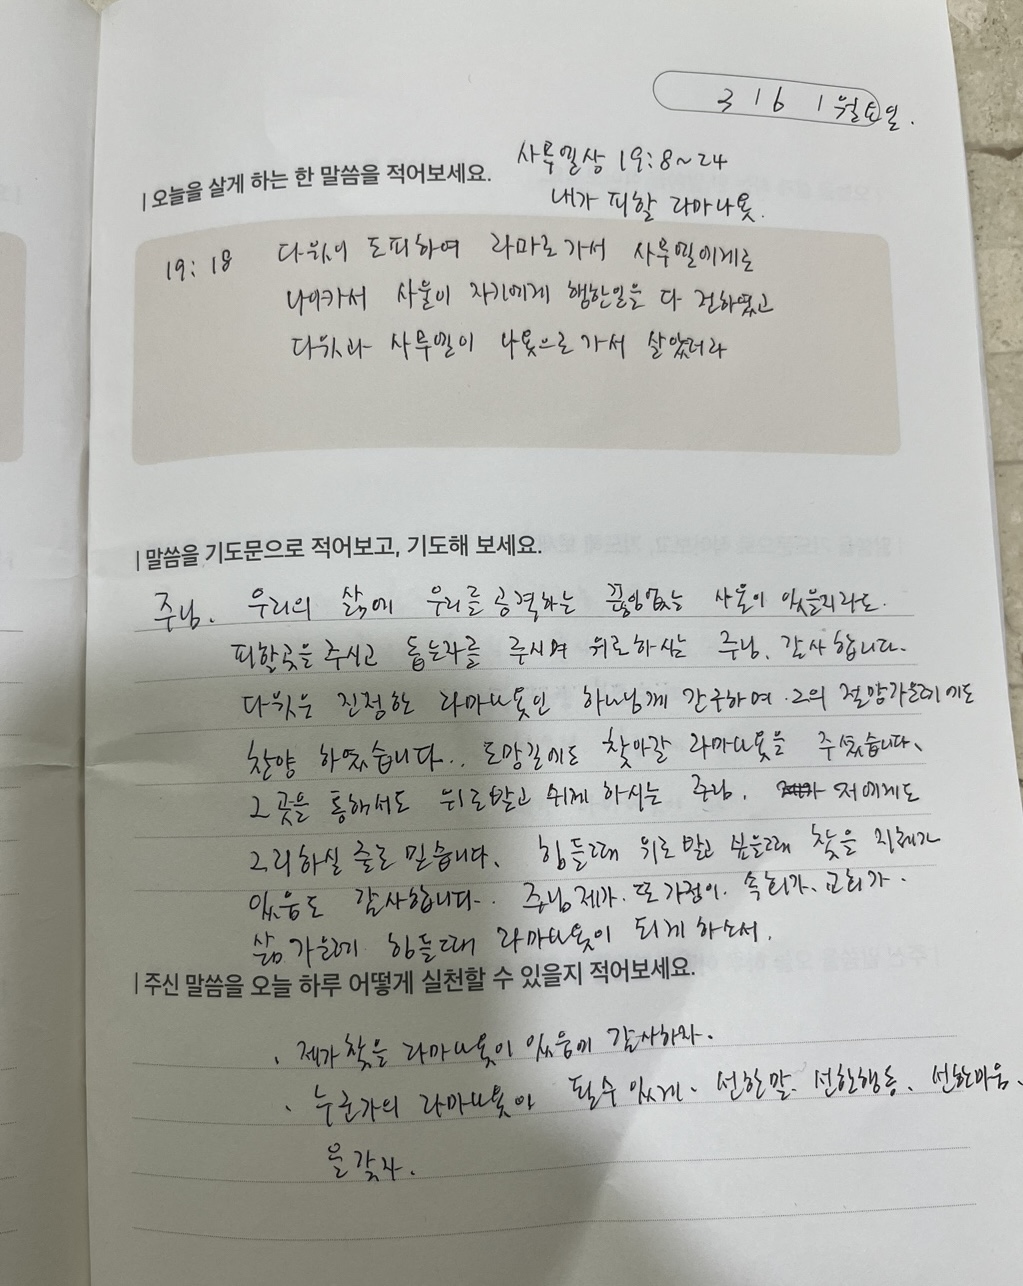 3 16 1 월요일.
사무엘상 19:8~24
| 오늘을 살게 하는 한 말씀을 적어보세요.
내가 피할 라마나욧.
19:18 다윗이 도피하여 라마로 가서 사무엘에게로
나아가서 사울이 자기에게 행한일을 다 전하였고
다윗과 사무엘이 나욧으로 가서 살았더라
| 말씀을 기도문으로 적어보고, 기도해 보세요.
주님. 우리의 삶에 우리를 공격하는 끊임없는 사울이 있을지라도.
피할곳을 주시고 돕는자를 주시며 위로하시는 주님, 감사합니다.
다윗은 진정한 라마나욧인 하나님께 간구하여. 그의 절망가운데에도
찬양 하였습니다.. 도망길에도 찾아갈 라마나욧을 주셨습니다.
그곳을 통해서도 위로받고 쉬게 하시는 주님. 저에게도
그리하실 줄로 믿습니다. 힘들때 위로 받고 싶을때 찾을 지체가
있음도 감사합니다.. 주님 제가. 또 가정이. 속회가. 교회가.
삶 가운데 힘들때 라마나욧이 되게 하소서.
| 주신 말씀을 오늘 하루 어떻게 실천할 수 있을지 적어보세요.
. 제가 찾을 라마나욧이 있음에 감사하자.
. 누군가의 라마나욧이 될수 있게. 선한말. 선한행동. 선한마음.
을 갖자.